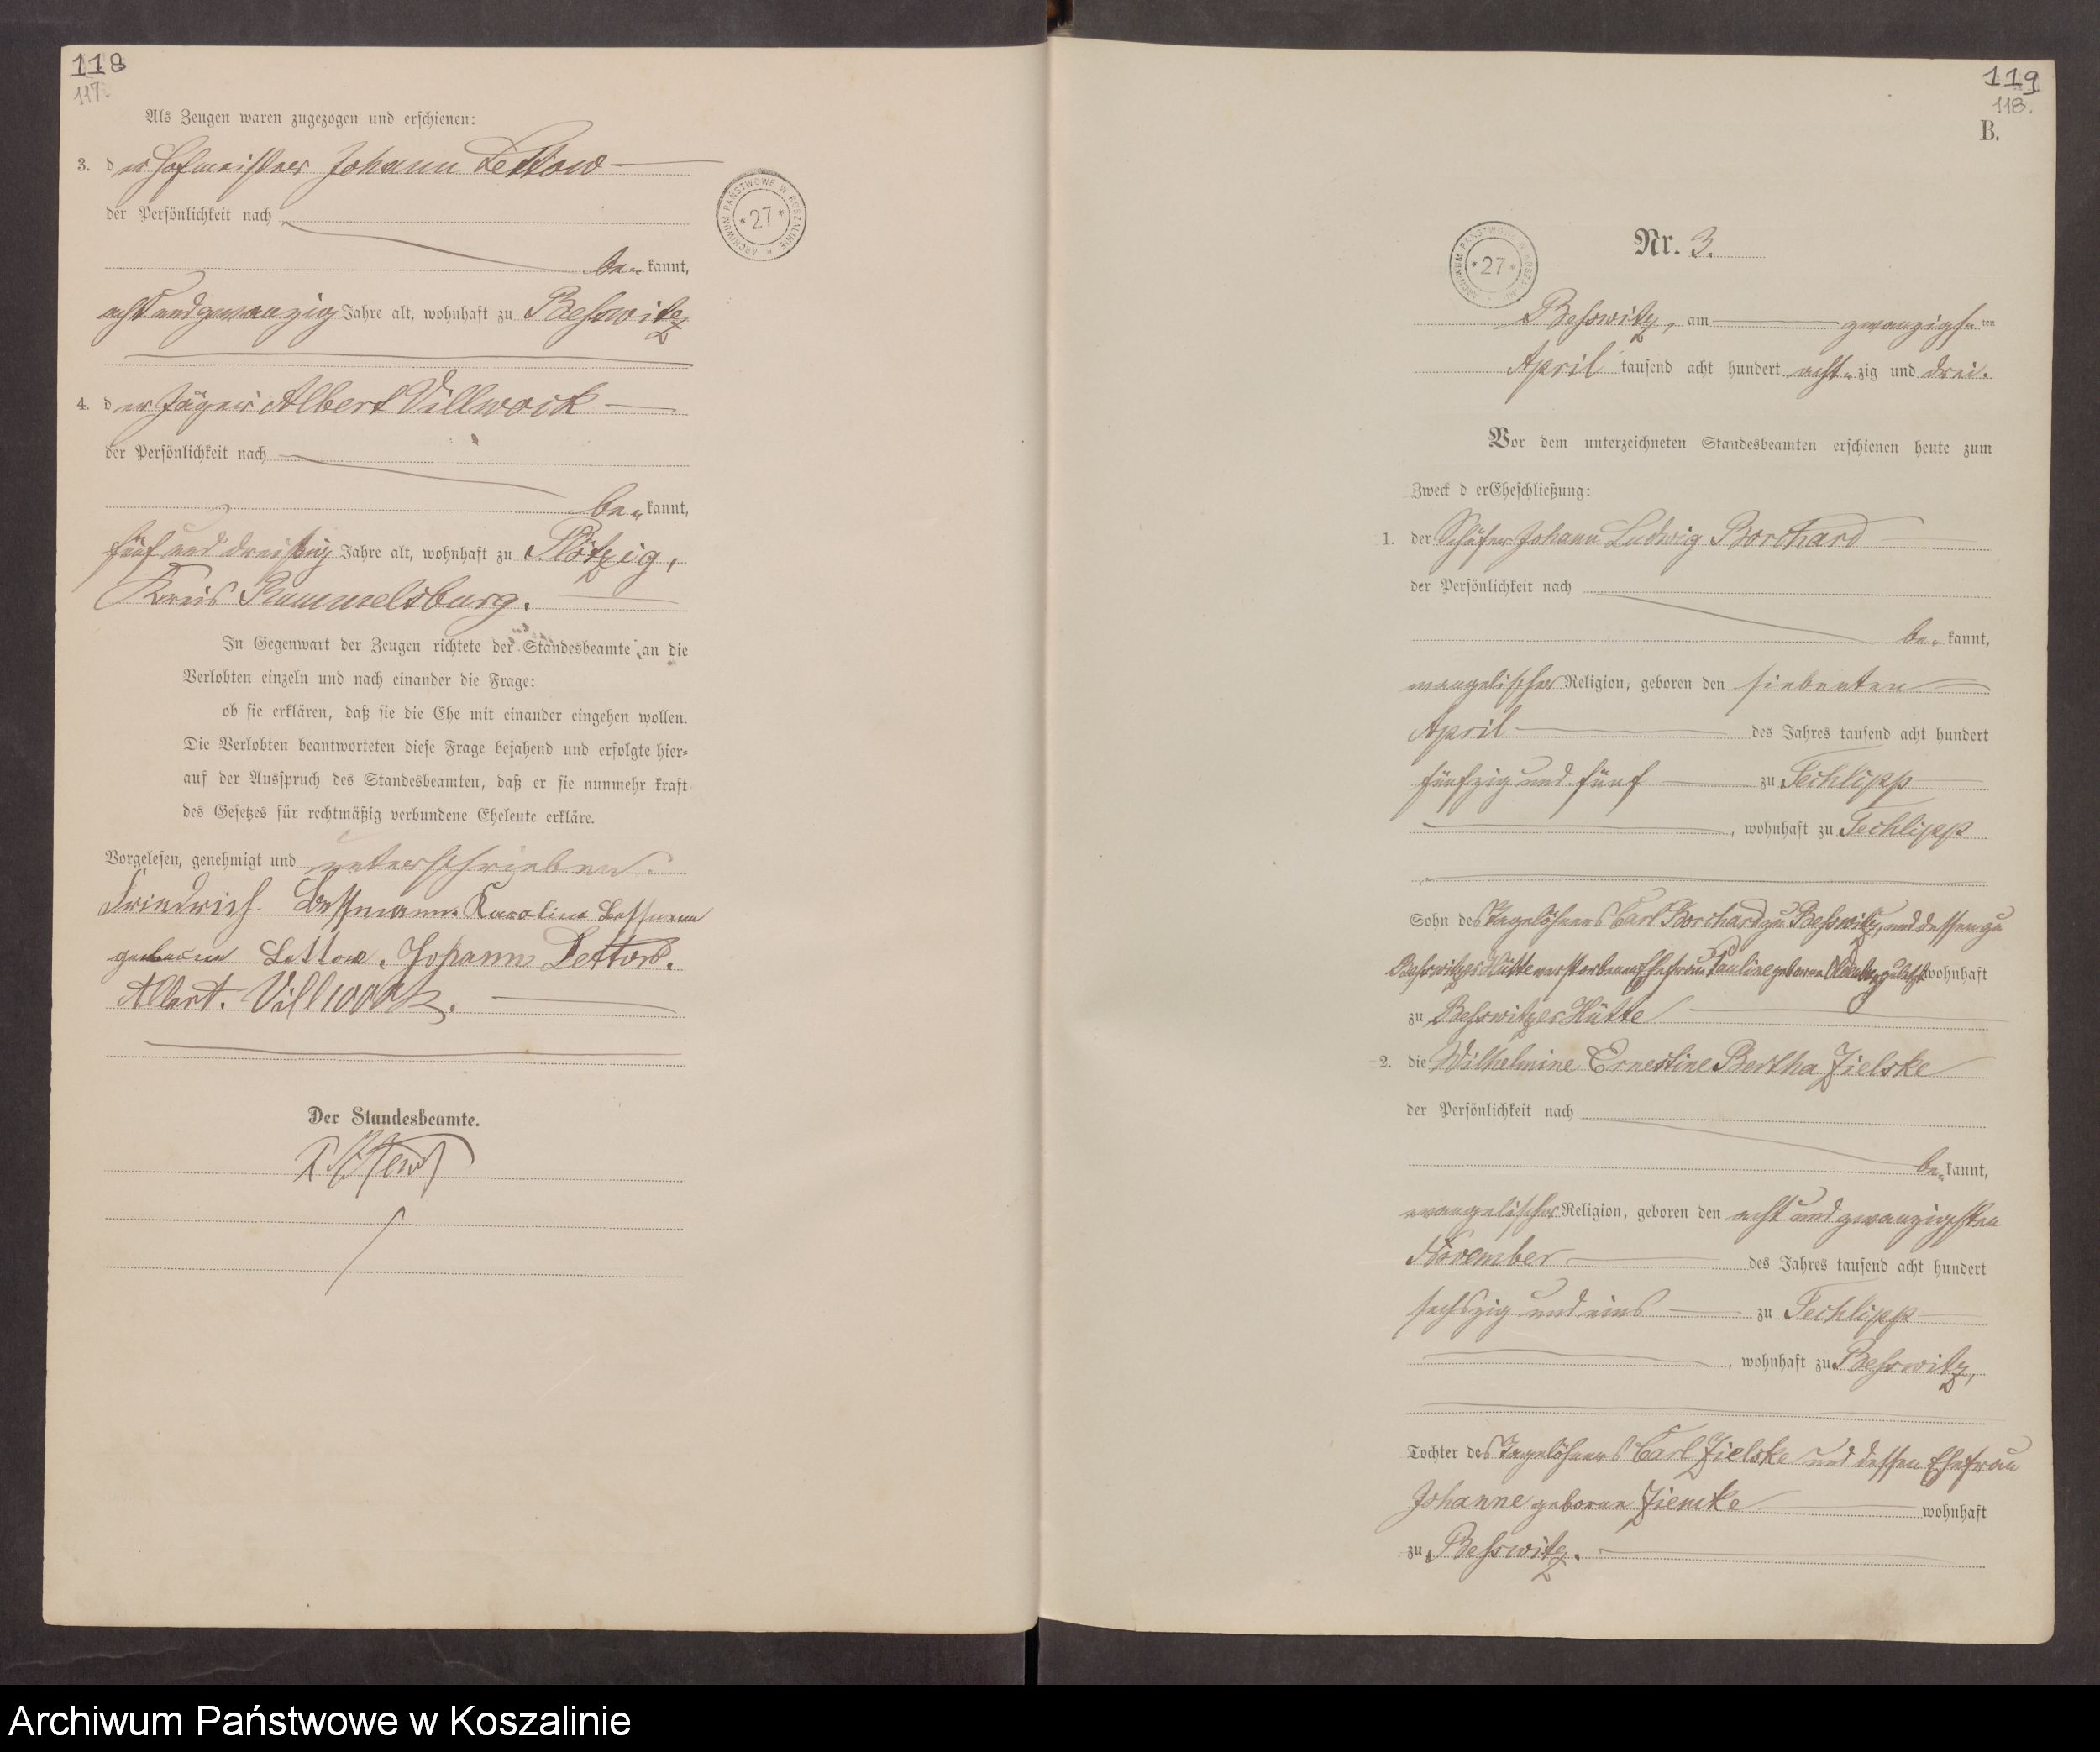 118
117.
Als Zeugen waren zugezogen und erschienen:
3. der Hofmeister Johann Lettow
der Persönlichkeit nach
be kannt,
acht und zwanzig Jahre alt, wohnhaft zu Beßwitz
4. der Jäger Albert Villwock
der Persönlichkeit nach
be kannt,
fünf und dreißig Jahre alt, wohnhaft zu Plötzig,
Kreis Rummelsburg.
In Gegenwart der Zeugen richtete der Standesbeamte an die
Verlobten einzeln und nach einander die Frage:
ob sie erklären, daß sie die Ehe mit einander eingehen wollen.
Die Verlobten beantworteten diese Frage bejahend und erfolgte hier-
auf der Ausspruch des Standesbeamten, daß er sie nunmehr kraft
des Gesetzes für rechtmäßig verbundene Eheleute erkläre.
Vorgelesen, genehmigt und unterschrieben.
Friedrich Karoline
geborene Lettow. Johann Lettow.
Albert. Villwock.
Der Standesbeamte.
ARCHIWUM PAŃSTWOWE W KOSZALINIE
* 27 *
119
118.
B.
ARCHIWUM PAŃSTWOWE W KOSZALINIE
* 27 *
Nr. 3.
Beßwitz, am zwanzigsten
April tausend acht hundert acht zig und drei.
Vor dem unterzeichneten Standesbeamten erschienen heute zum
Zweck der Eheschließung:
1. der Schäfer Johann Ludwig Borchard
der Persönlichkeit nach
be kannt,
evangelischer Religion, geboren den siebenten
April des Jahres tausend acht hundert
fünfzig und fünf zu Techlipp
, wohnhaft zu Techlipp
Sohn des Tagelöhners Carl Borchard zu Beßwitz, und dessen zu
Beßwitzer Hütte verstorbenen Ehefrau Pauline geborene zuletzt wohnhaft
zu Beßwitzer Hütte
2. die Wilhelmine Ernestine Bertha Zielske
der Persönlichkeit nach
be kannt,
evangelischer Religion, geboren den acht und zwanzigsten
November des Jahres tausend acht hundert
sechszig und eins zu Techlipp
, wohnhaft zu Beßwitz,
Tochter des Tagelöhners Carl Zielske und dessen Ehefrau
Johanne geborene Ziemke wohnhaft
zu Beßwitz.
Archiwum Państwowe w Koszalinie